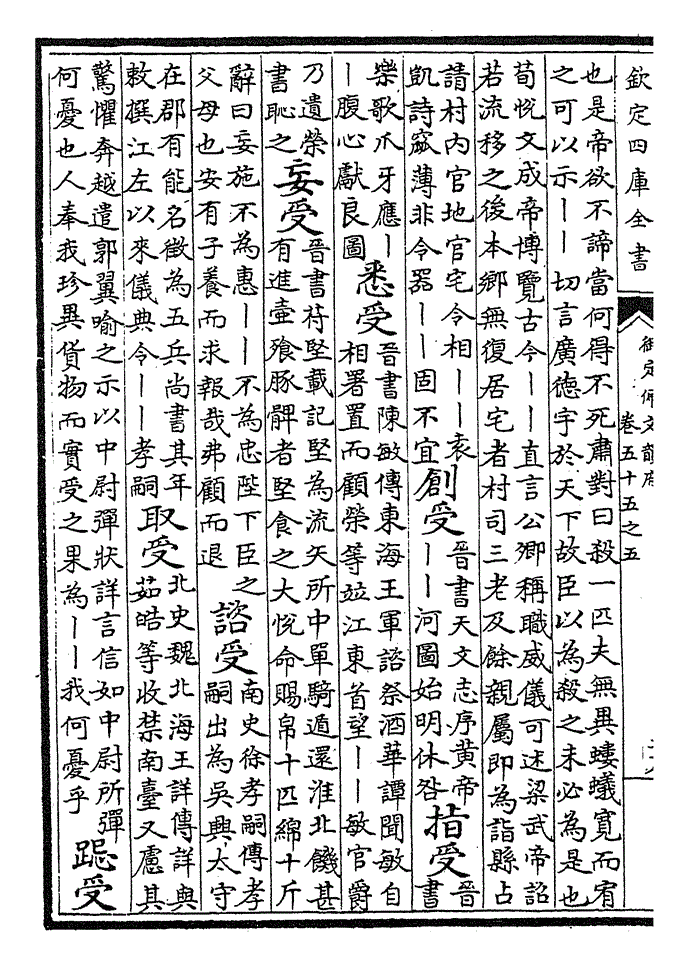 欽定四庫全書
御定佩文韻府
卷五十五之五
也是帝欲不諦當何得不死肅對曰殺一匹夫無異螻蟻寬而宥
之可以示——切言廣德宇於天下故臣以為殺之未必為是也
荀悅文成帝博覽古今——直言公卿稱職威儀可述梁武帝詔
若流移之後本鄉無復居宅者村司三老及餘親屬即為詣縣占
請村內官地官宅令相——袁
凱詩窳薄非令器——固不宜
創受
晉書天文志序黃帝
——河圖始明休咎
指受
晉
書
樂歌爪牙應—
—腹心獻良圖
悉受
晉書陳敏傳東海王軍諮祭酒華譚聞敏自
相署置而顧榮等竝江東首望——敏官爵
乃遺榮
書恥之
妄受
晉書苻堅載記堅為流矢所中單騎遁還淮北饑甚
有進壺飱豚髀者堅食之大悅命賜帛十匹綿十斤
辭曰妄施不為惠——不為忠陛下臣之
父母也安有子養而求報哉弗顧而退
諮受
南史徐孝嗣傳孝
嗣出為吳興太守
在郡有能名徵為五兵尚書其年
敕撰江左以來儀典令——孝嗣
取受
北史魏北海王詳傳詳與
茹皓等收禁南臺又慮其
驚懼奔越遣郭翼喻之示以中尉彈狀詳言信如中尉所彈
何憂也人奉我珍異貨物而實受之果為——我何憂乎
跽受